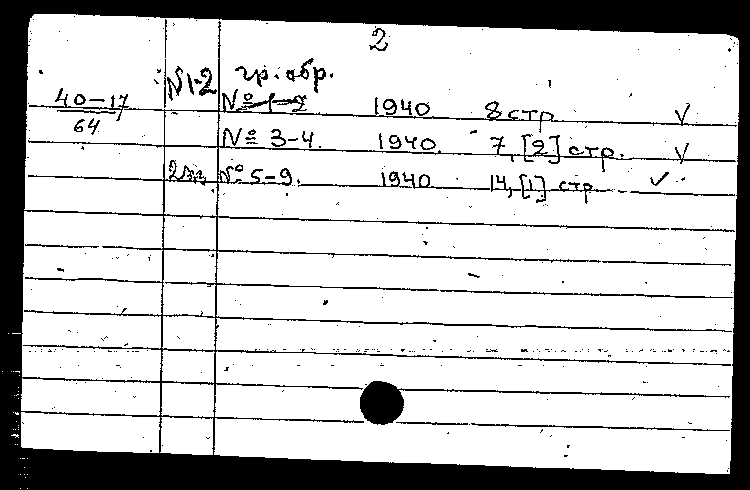 2
№1-2 гр. обр.
40-17 № 1-2 1940 8 стр. V
64
№ 3-4. 1940. 7, [2] стр. V
2 экз № 5-9. 1940 14, [1] стр V